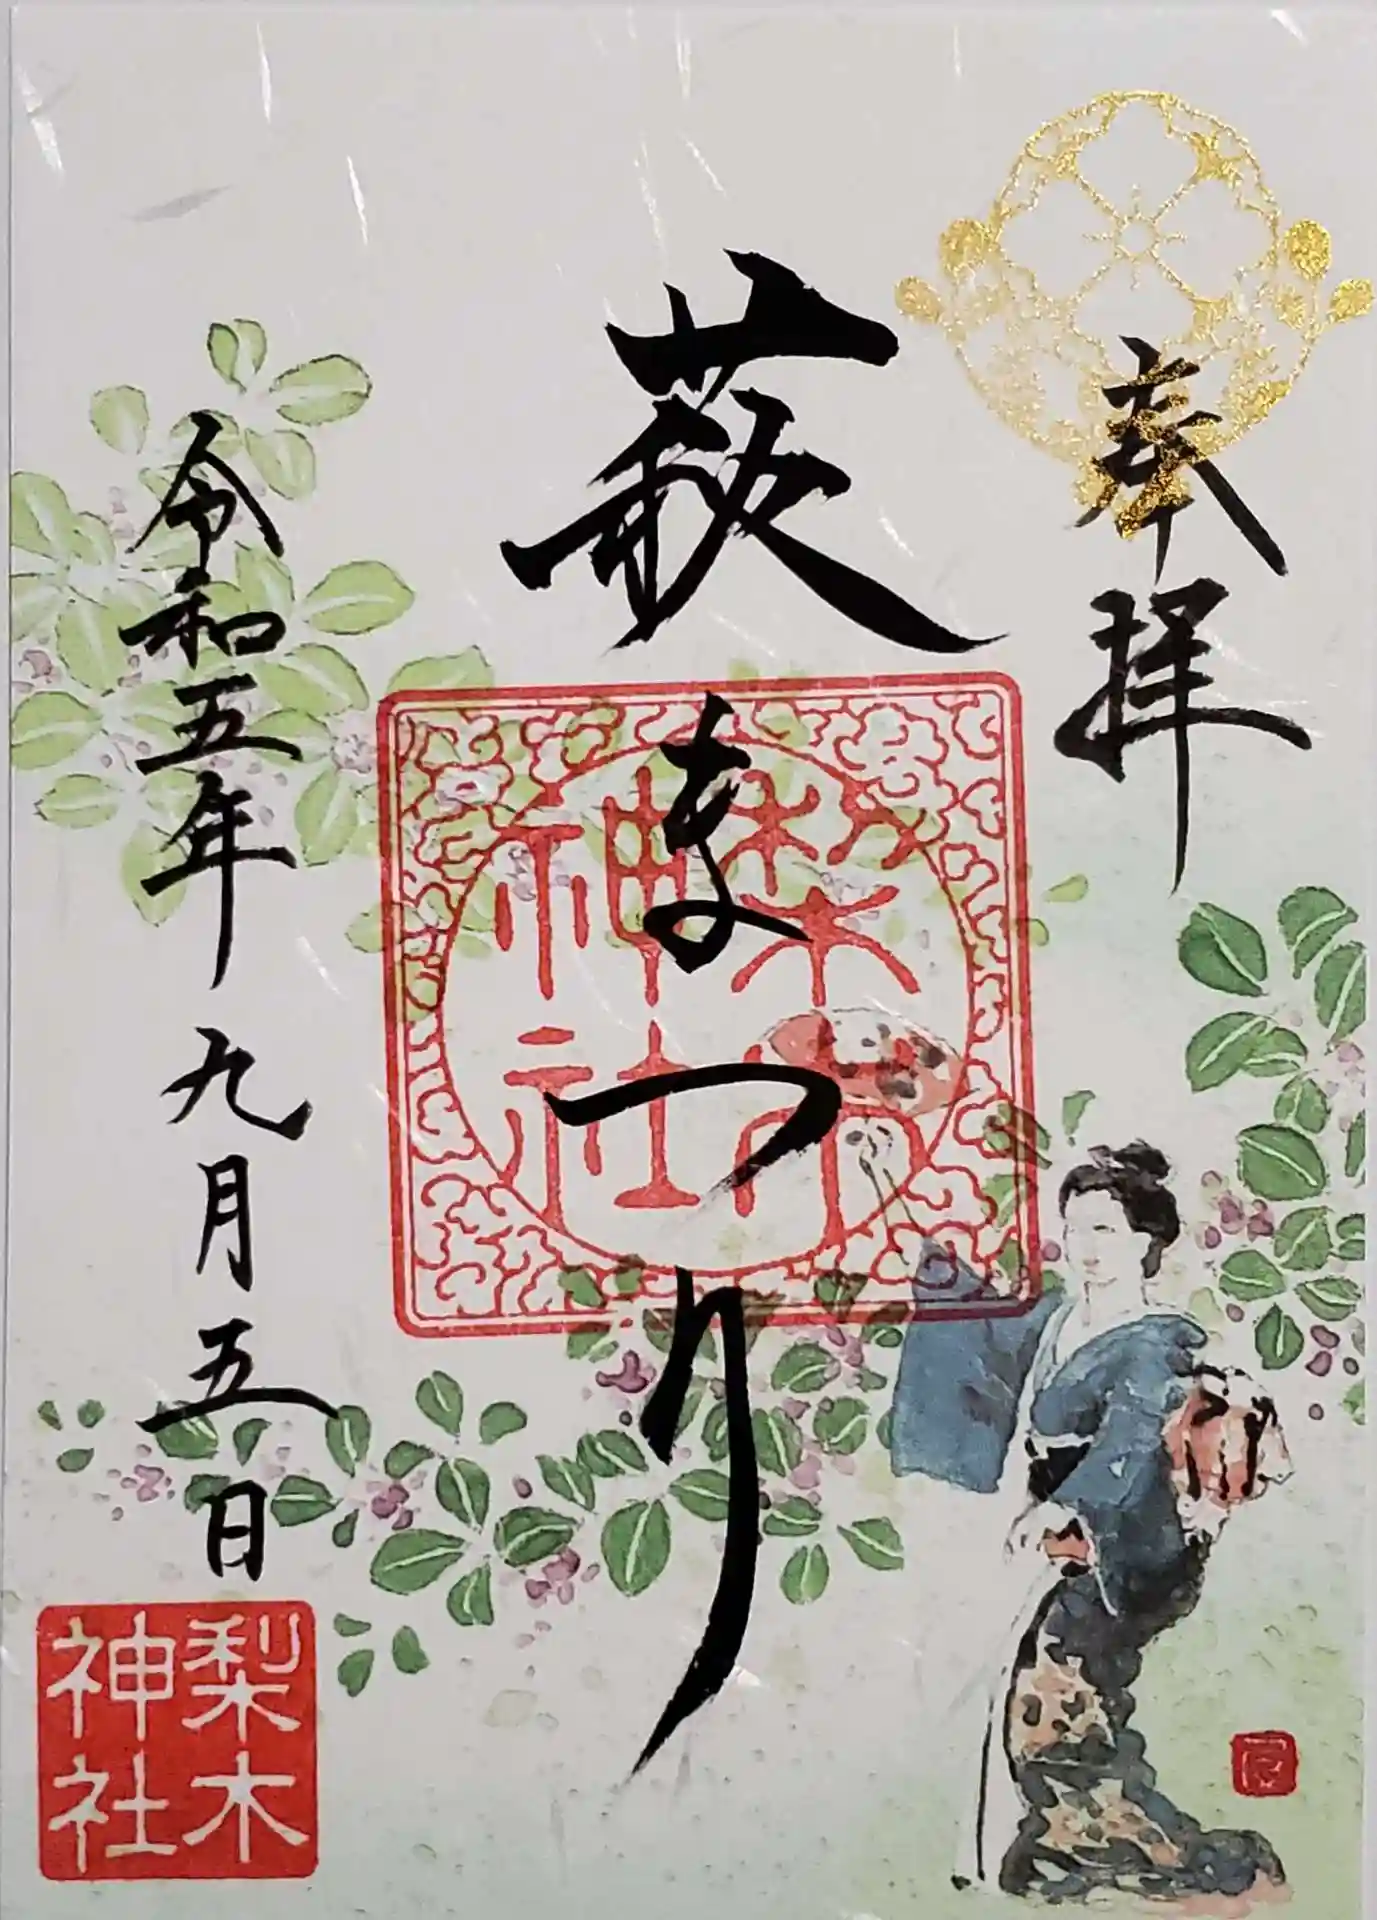 奉拝
萩まつり
梨木神社
令和五年 九月五日
梨木神社